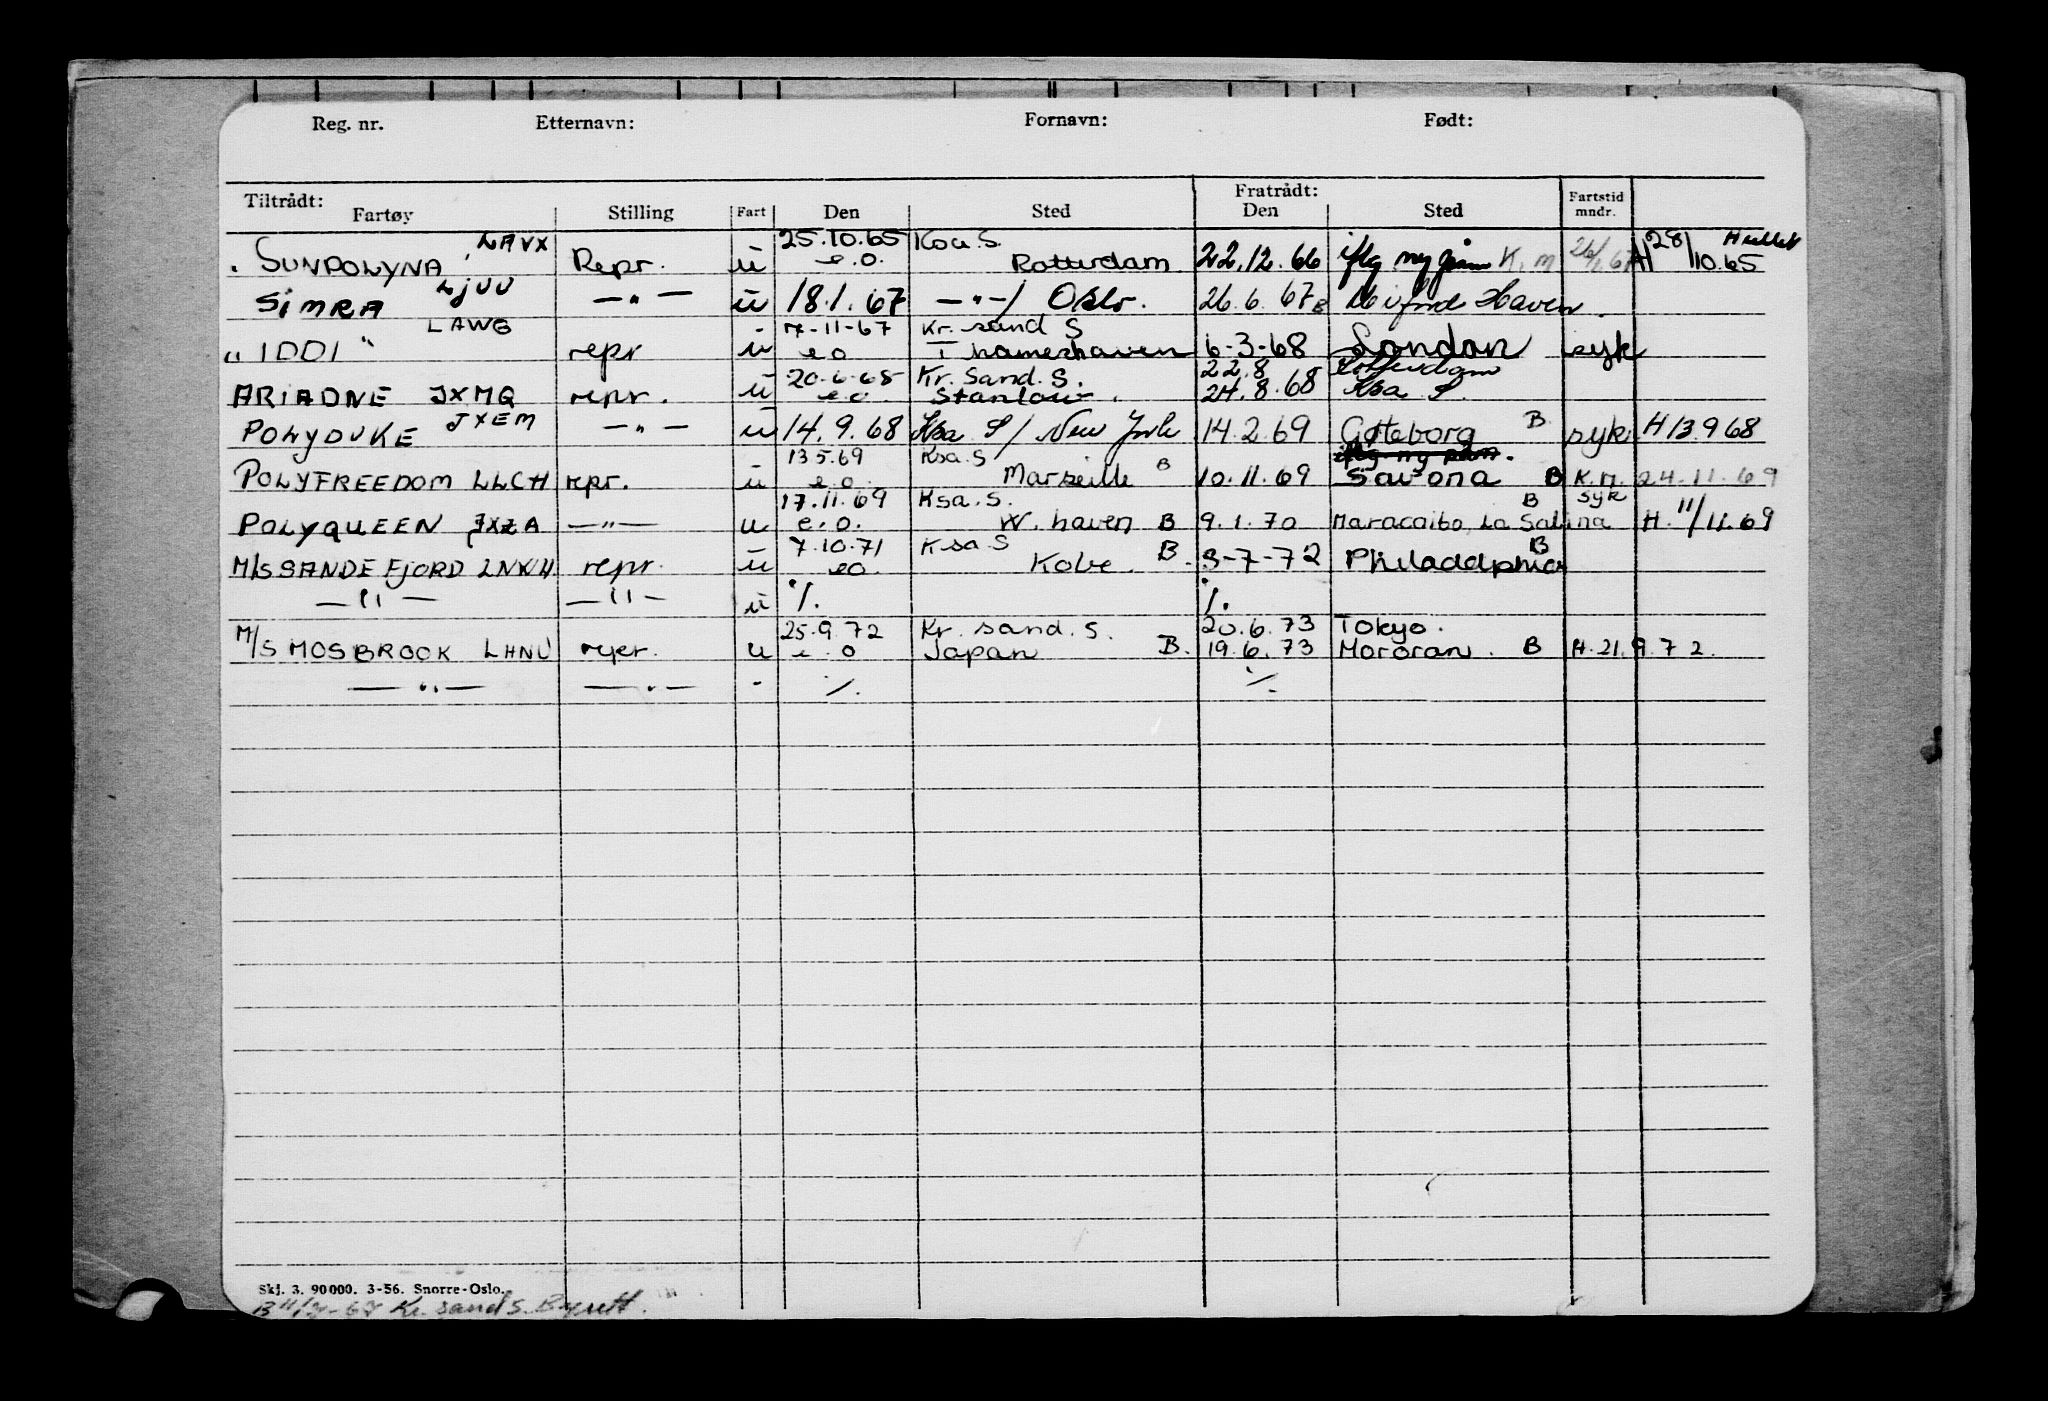 Reg. nr. Etternavn: Fornavn: Født:
Tiltrådt: Fratrådt:
Fartøy Stilling Fart Den Sted Den Sted Fartstid mndr.
SUNPOLYNA LAVX Repr. u 25.10.65 e.o. Ksa. S. Rotterdam 22.12.66 iflg ny K. m H 28/10.65
SIMRA LJUU —"— u 18.1.67 —"—/ Oslo. 26.6.67 B Milford Haven.
"IDDI" LAWG repr u 7-11-67 eo Kr. sand S Thameshaven 6-3-68 London syk
ARIADNE JXMQ repr. u 20.6.68 e.o. Kr. Sand. S. Stanlow. 22.8 24.8.68 Rotterdam Ksa S.
POLYDUKE JXEM —"— u 14.9.68 Ksa S/ New York 14.2.69 Gøteborg B syk H 13.9 68
POLYFREEDOM LLCH repr. u 13 5.69 e.o. Ksa. S Marseille B 10.11.69 Savona B K.M. 24.11.69
POLYQUEEN JXZA —"— u 17.11.69 e.o. Ksa. S. W. haven B 9.1.70 Maracaibo, La Salina B syk H. 11/11.69
M/S SANDEFJORD LNKH repr. u 7.10.71 eo. Ksa S Kobe. B. 3-7-72 Philadelphia B
—"— —"— u %. %.
M/S MOSBROOK LHNU repr. u 25.9.72 e.o Kr. sand. S. Japan B. 20.6.73 19.6.73 Tokyo. Mororan. B H. 21.9.72.
—"— —"— - %. %.
Skj. 3. 90000. 3-56. Snorre-Oslo.
Kr. sand S. Byrett.